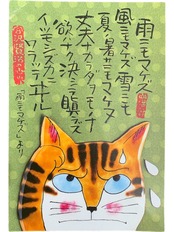 雨ニモマケズ
風ニモマケズ雪ニモ
夏ノ暑サニモマケヌ
丈夫ナカラダヲモチ
欲ハナク決シテ
イツモシズカニ
ワラッテヰル
宮沢賢治
「雨ニモマケズ」より